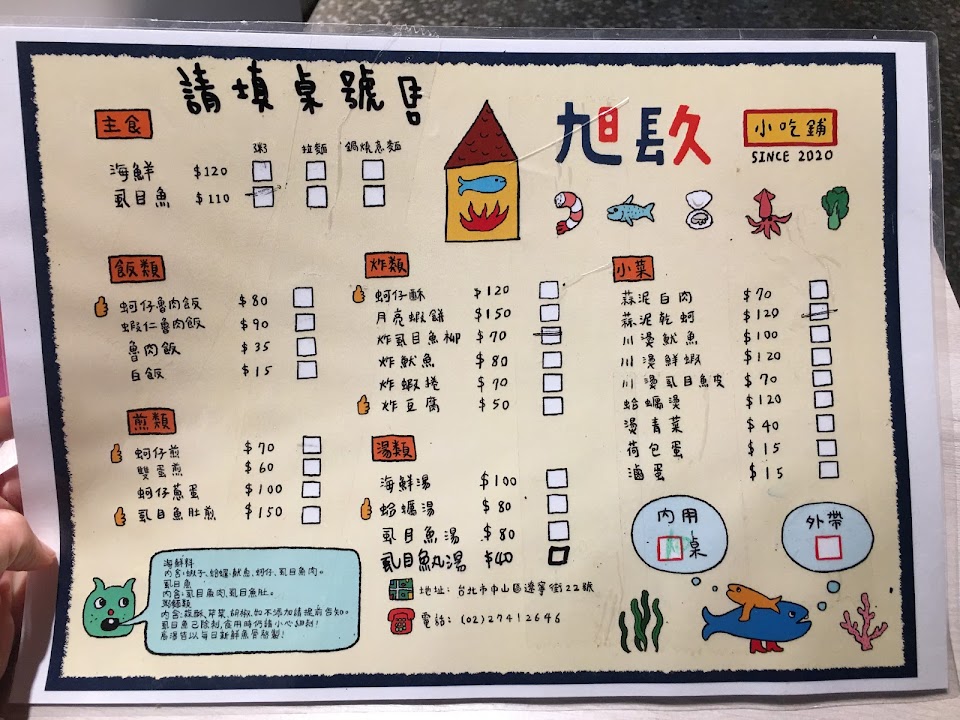 請填桌號
旭長久
小吃舖
SINCE 2020
主食
粥 拉麵 鍋燒意麵
海鮮 $120
虱目魚 $110
飯類
蚵仔魯肉飯 $80
蝦仁魯肉飯 $90
魯肉飯 $35
白飯 $15
煎類
蚵仔煎 $70
雙蛋煎 $60
蚵仔蔥蛋 $100
虱目魚肚煎 $150
炸類
蚵仔酥 $120
月亮蝦餅 $150
炸虱目魚柳 $70
炸魷魚 $80
炸蝦捲 $70
炸豆腐 $50
湯類
海鮮湯 $100
蛤蠣湯 $80
虱目魚湯 $80
虱目魚丸湯 $40
小菜
蒜泥白肉 $70
蒜泥乾蚵 $120
川燙魷魚 $100
川燙鮮蝦 $120
川燙虱目魚皮 $70
蛤蠣燙 $120
燙青菜 $40
荷包蛋 $15
滷蛋 $15
內用
桌
外帶
海鮮料
內含:蝦子、蛤蠣、魷魚、蚵仔、虱目魚肉。
虱目魚
內含:虱目魚肉,虱目魚肚。
粥麵類
內含:蒜酥、芹菜、胡椒,如不添加請提前告知。
虱目魚已除刺,食用時仍請小心細刺!
湯頭皆以每日新鮮魚骨熬製!
地址:台北市中山區遼寧街22號
電話:(02)27412646